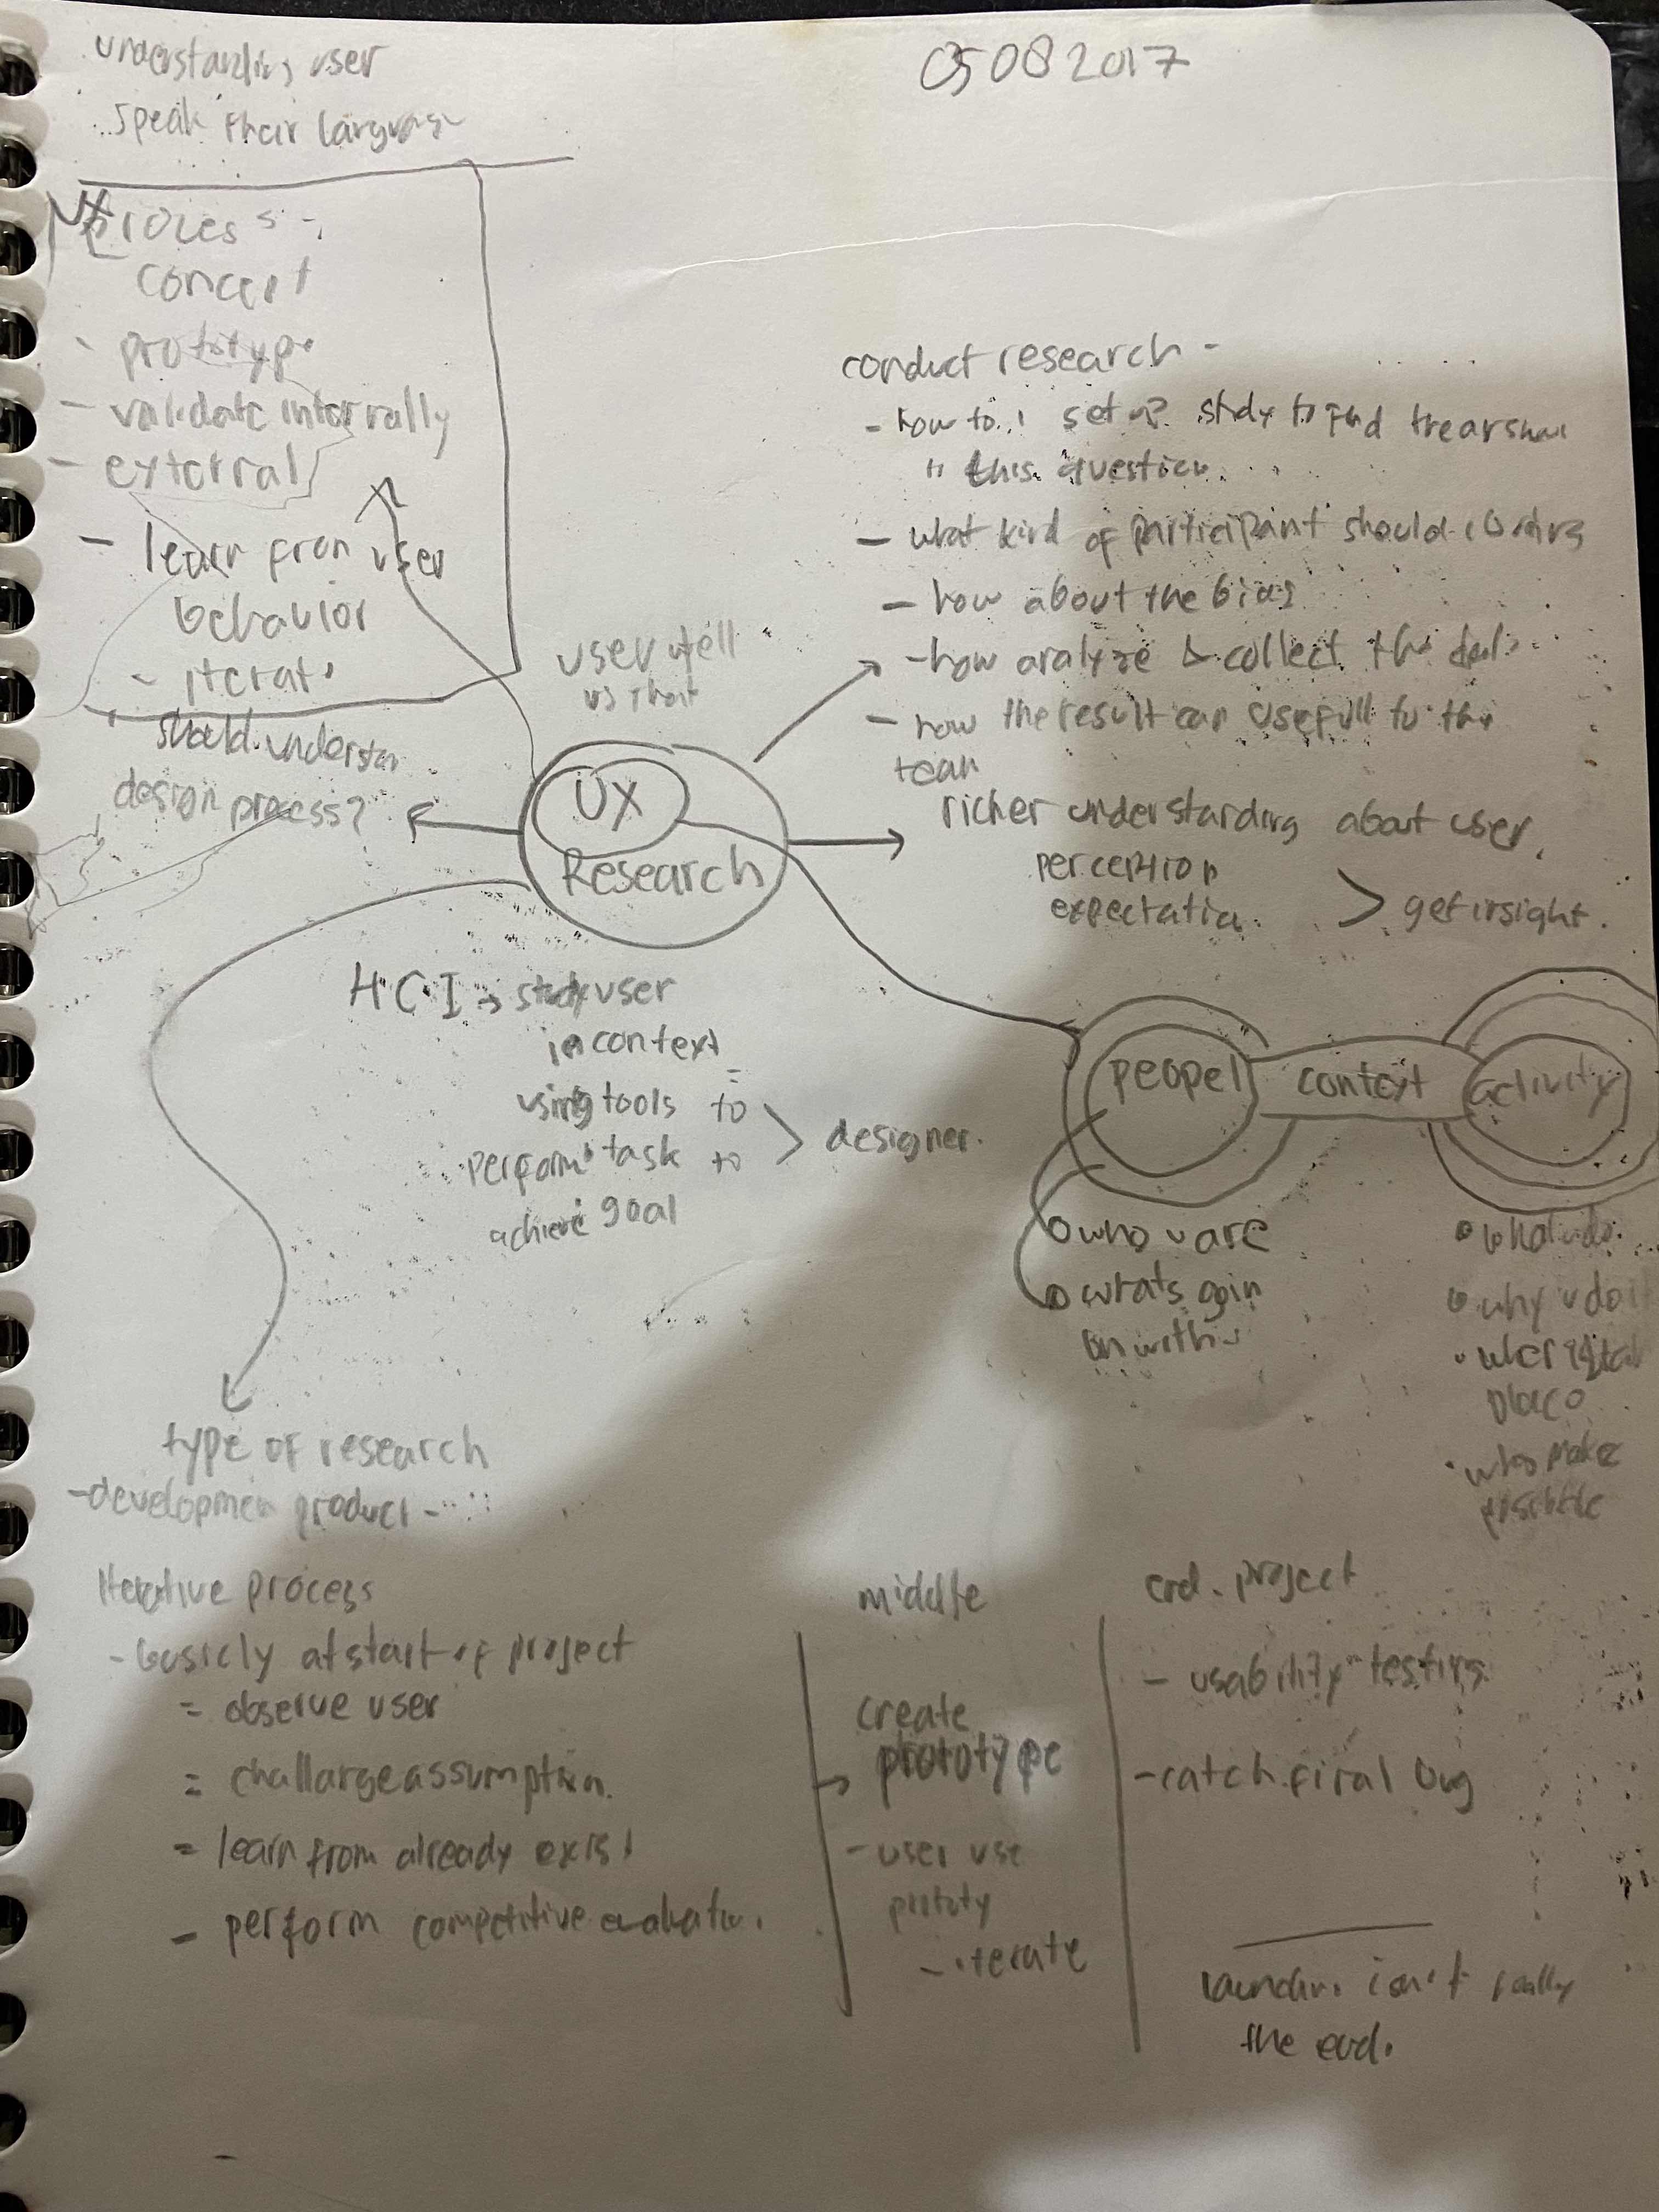 understanding user
speak their language
05 08 2017
process -
concept
- prototype
- validate internally
- external
- learn from user
behavior
- iterate
should understan
design process?
user
us
conduct research -
- how to set up study to find
this question
- what kind of participant should
- how about the bias
- how analyze & collect the
- how the result can usefull to the
team
UX
Research
richer understanding about user
perception
expectation
> get insight.
HCI → study user
in context
using tools to
perform task to
achieve goal
> designer.
peopel
context
activity
who u are
whats goin
on within
what u do
why u do it
place
who make
type of research
- developmen product -
Iterative process
- basicly at start of project
= observe user
= challange assumption.
= learn from already exist
- perform competitive
middle
create
→ prototype
- user use
prototy
- iterate
end. project
- usability testing
- catch final bug
isn't really
the end.